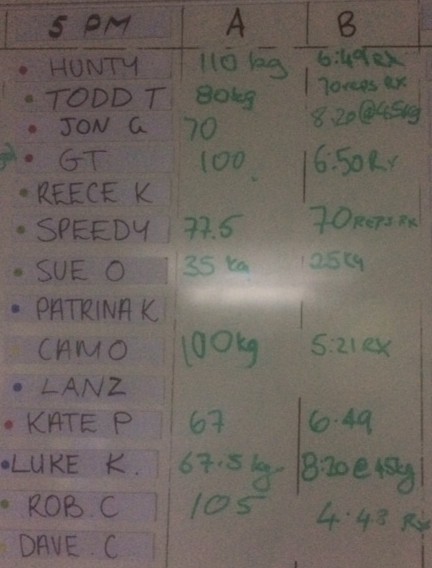 5 PM A B
HUNTY 110 kg 6:49 RX
TODD T 80kg 70reps RX
JON G 70 8:20@45kg
GT 100 6:50 Rx
REECE K
SPEEDY 77.5 70 REPS RX
SUE O 35 kg 25kg
PATRINA K
CAMO 100kg 5:21 RX
LANZ
KATE P 67 6.49
LUKE K. 67.5 kg 8:20 @ 45kg
ROB. C 105 4.43 Rx
DAVE. C